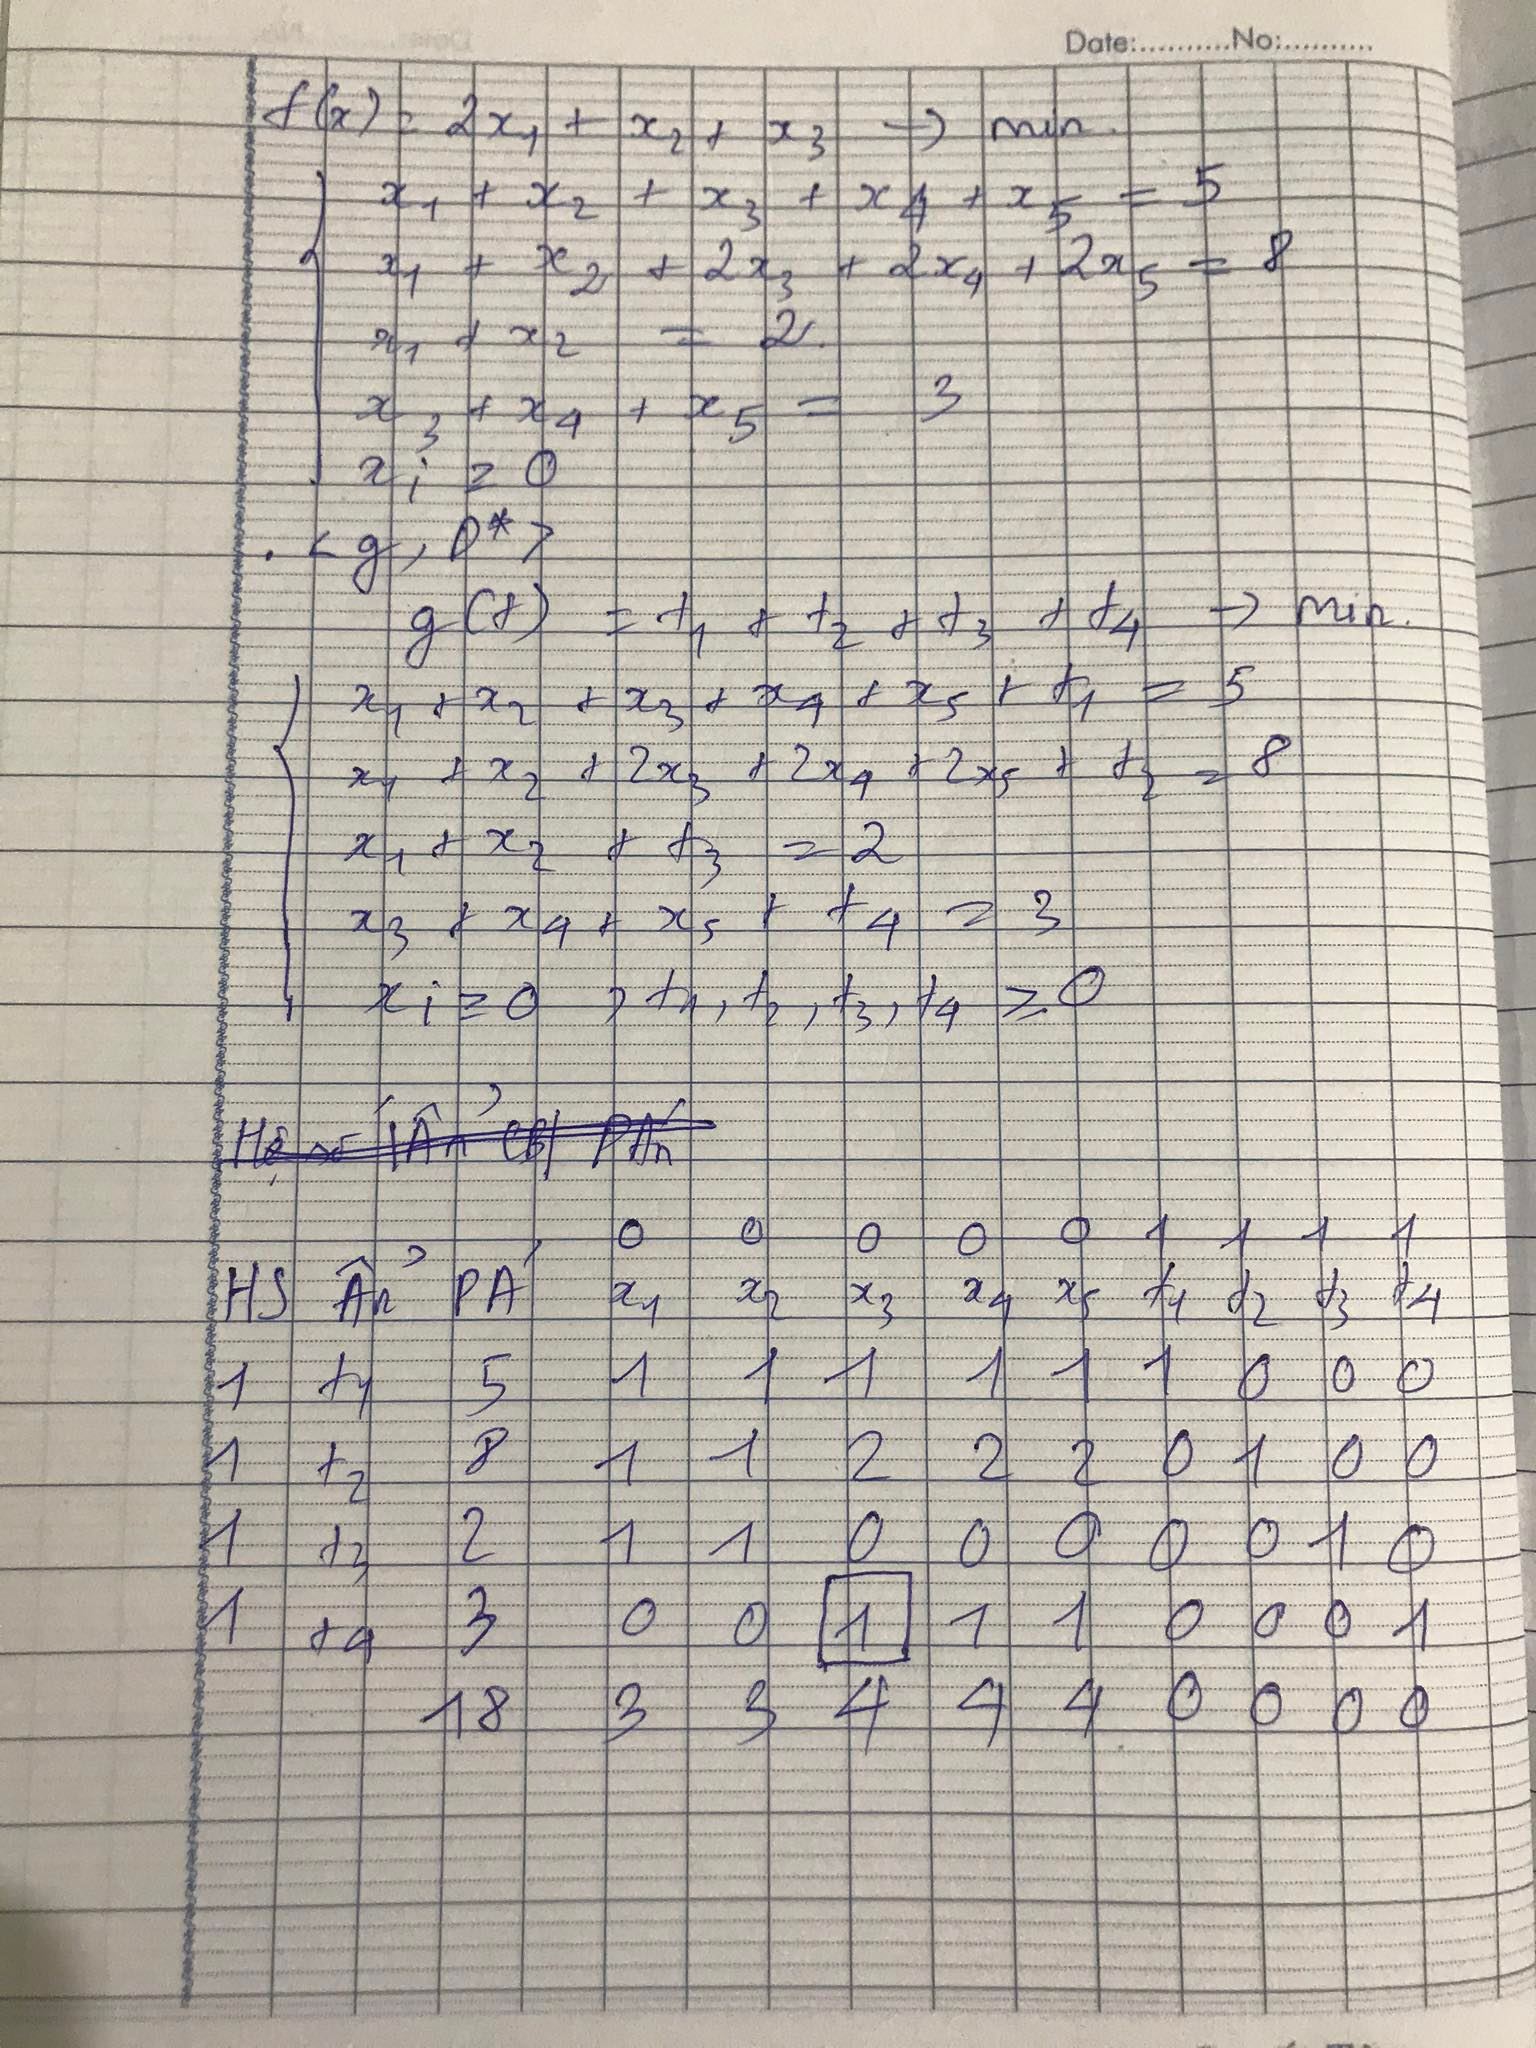 Date:..........No:...........
f(x) = 2x₁ + x₂ + x₃ → min.
x₁ + x₂ + x₃ + x₄ + x₅ = 5
x₁ + x₂ + 2x₃ + 2x₄ + 2x₅ = 8
x₁ + x₂ = 2.
x₃ + x₄ + x₅ = 3
xᵢ ≥ 0
. < g, P* >
g(t) = t₁ + t₂ + t₃ + t₄ → min.
x₁ + x₂ + x₃ + x₄ + x₅ + t₁ = 5
x₁ + x₂ + 2x₃ + 2x₄ + 2x₅ + t₂ = 8
x₁ + x₂ + t₃ = 2
x₃ + x₄ + x₅ + t₄ = 3
xᵢ ≥ 0 , t₁, t₂, t₃, t₄ ≥ 0
Hệ số Ẩn CB PÁn
0 0 0 0 0 1 1 1 1
HS Ẩn PÁ x₁ x₂ x₃ x₄ x₅ t₁ t₂ t₃ t₄
1 t₁ 5 1 1 1 1 1 1 0 0 0
1 t₂ 8 1 1 2 2 2 0 1 0 0
1 t₃ 2 1 1 0 0 0 0 0 1 0
1 t₄ 3 0 0 1 1 1 0 0 0 1
18 3 3 4 4 4 0 0 0 0